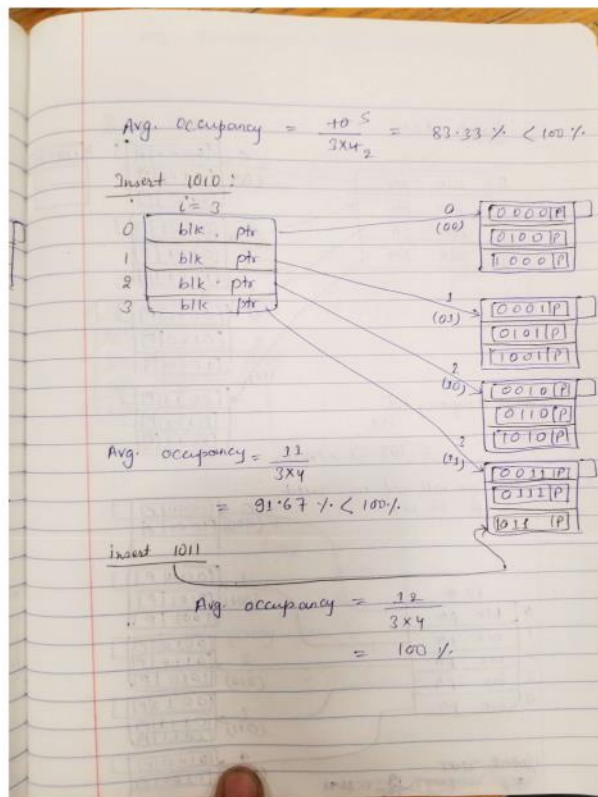 Avg. occupancy = 10 5 / 3x4 2 = 83.33 % < 100 %
Insert 1010 :
i = 3
0 blk. ptr
1 blk ptr
2 blk. ptr
3 blk ptr
0
(00)
0000 P
0100 P
1000 P
1
(01)
0001 P
0101 P
1001 P
2
(10)
0010 P
0110 P
1010 P
(11)
0011 P
0111 P
1011 P
Avg. occupancy = 11 / 3x4
= 91.67 % < 100%
insert 1011
Avg occupancy = 12 / 3x4
= 100 %